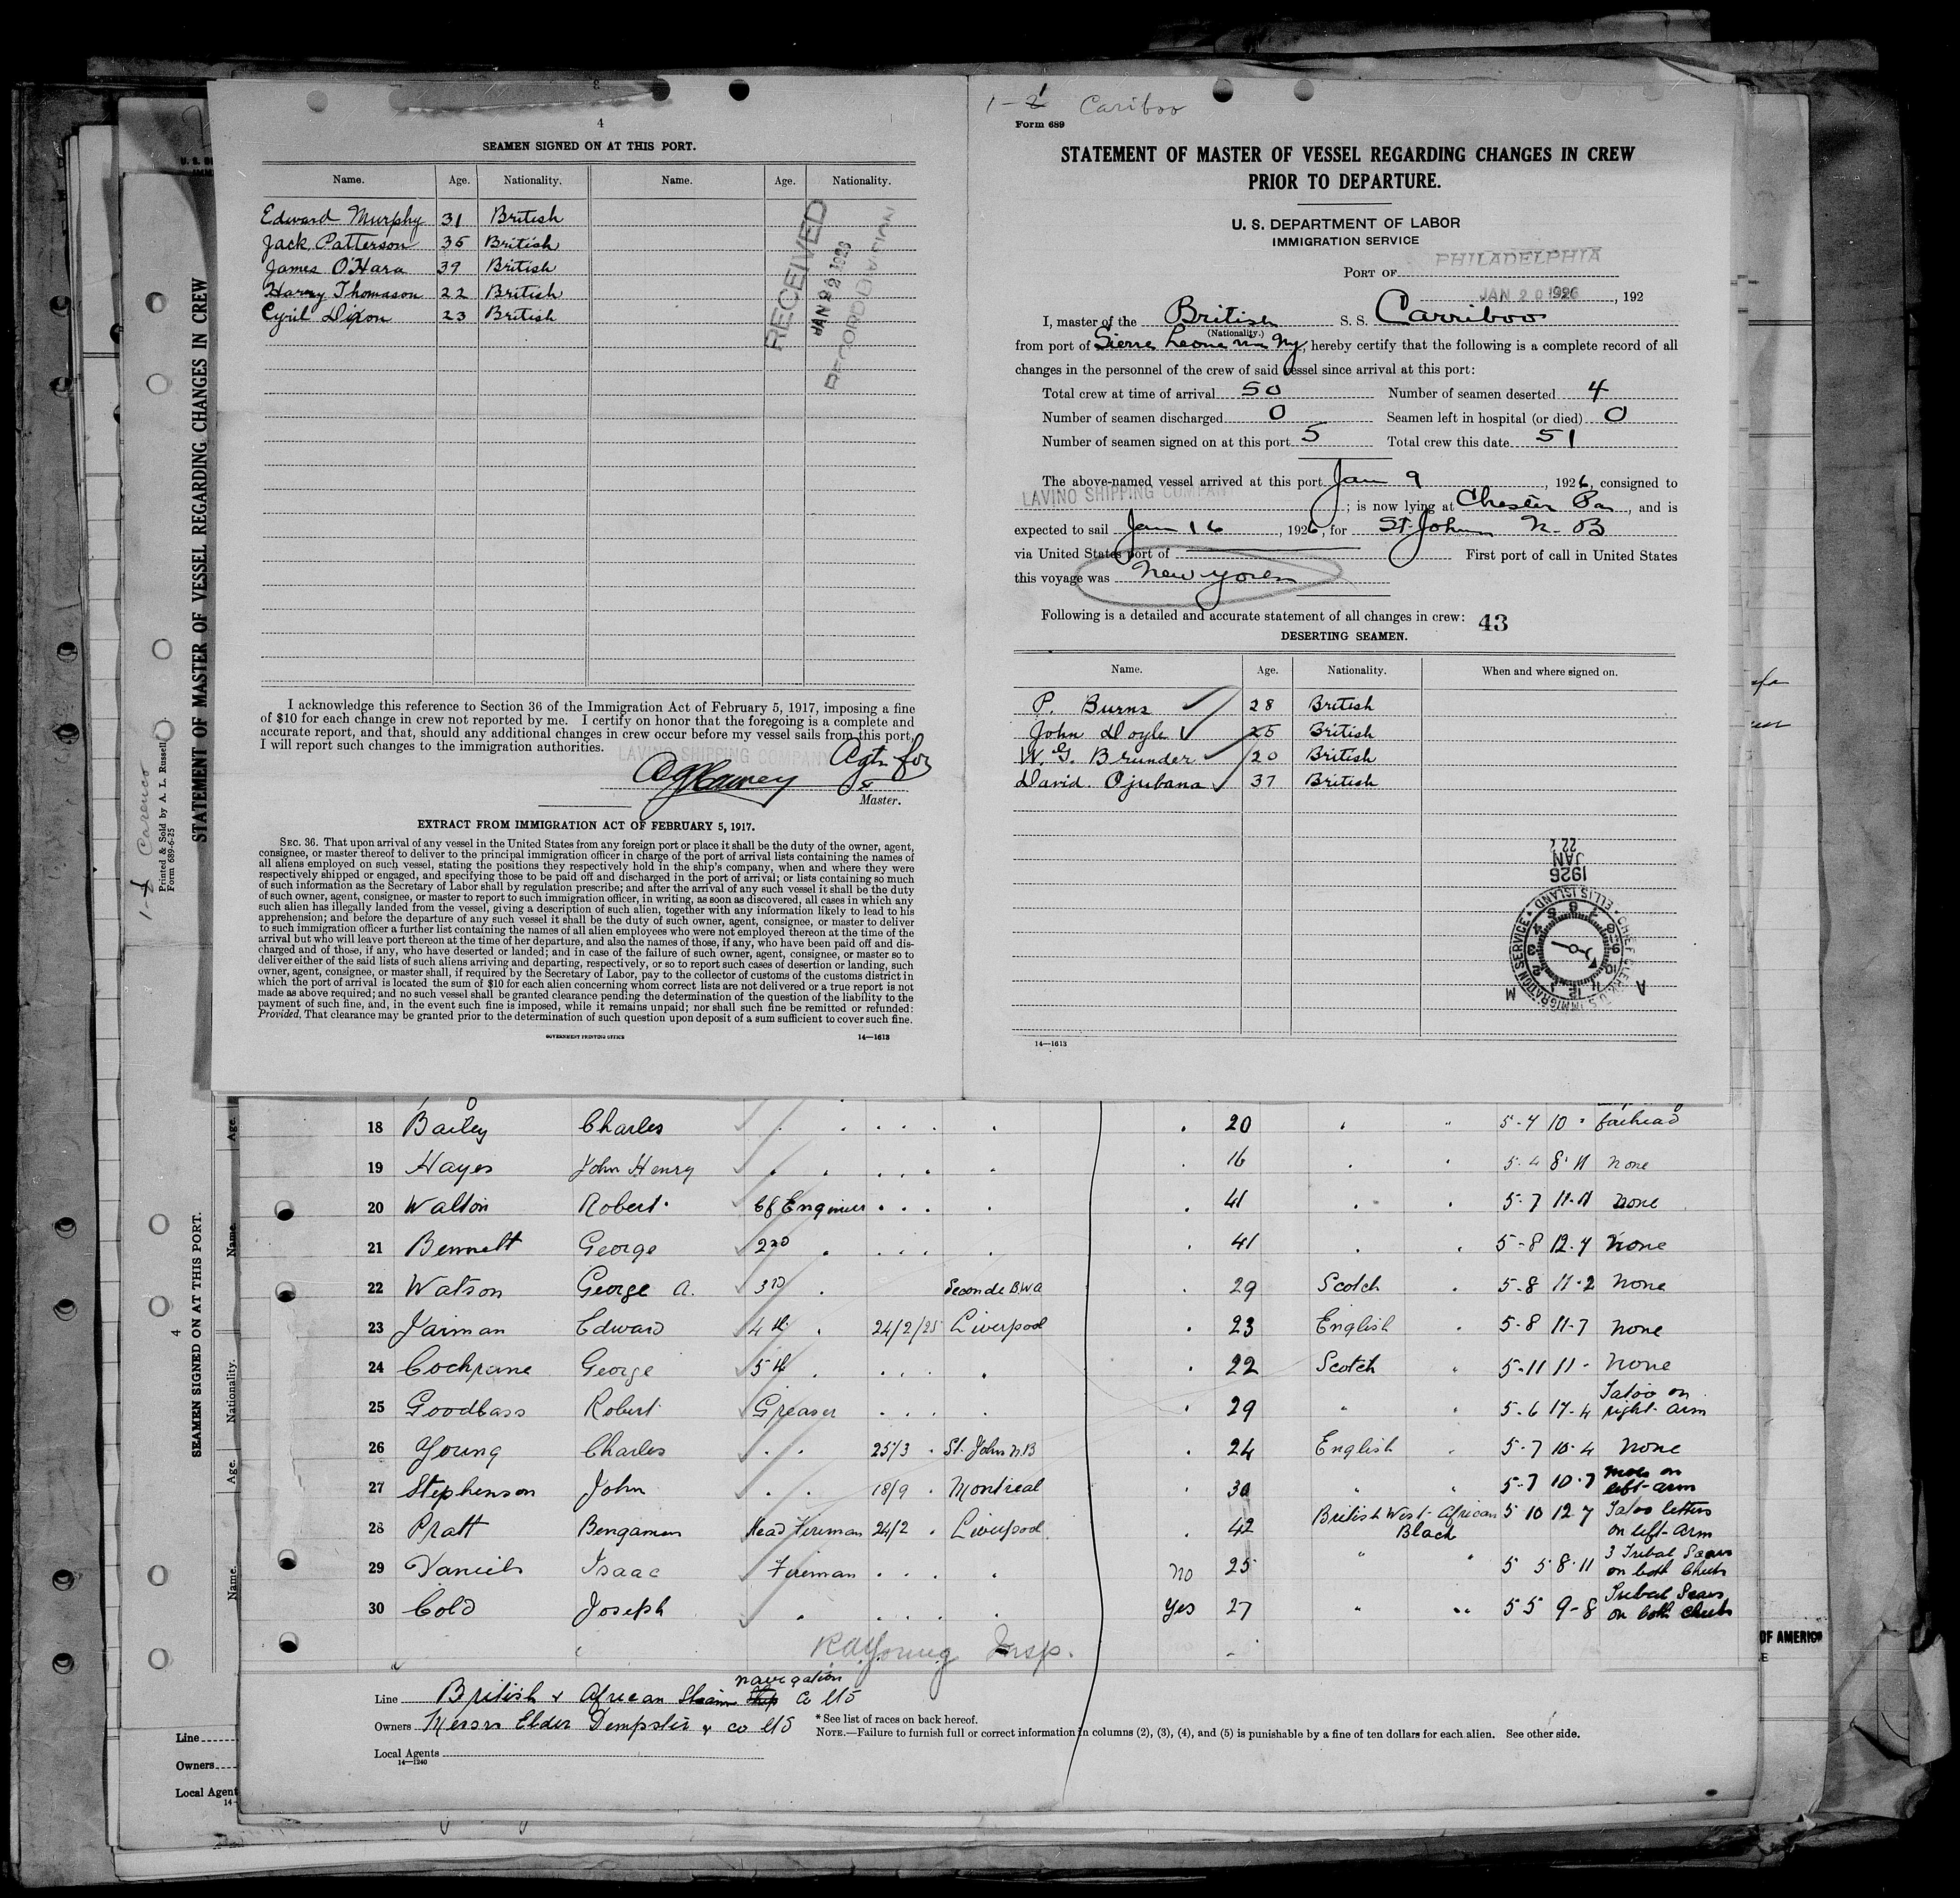 4
SEAMEN SIGNED ON AT THIS PORT.
Name. Age. Nationality. Name. Age. Nationality.
Edward Murphy 31 British
Jack Patterson 35 British
James O'Hara 39 British
Harry Thomason 22 British
Cyril Dixon 23 British
RECEIVED
JAN 22 1926
RECORD DIVISION
I acknowledge this reference to Section 36 of the Immigration Act of February 5, 1917, imposing a fine
of $10 for each change in crew not reported by me. I certify on honor that the foregoing is a complete and
accurate report, and that, should any additional changes in crew occur before my vessel sails from this port,
I will report such changes to the immigration authorities.
LAVINO SHIPPING COMPANY
Agts for
Master.
EXTRACT FROM IMMIGRATION ACT OF FEBRUARY 5, 1917.
SEC. 36. That upon arrival of any vessel in the United States from any foreign port or place it shall be the duty of the owner, agent,
consignee, or master thereof to deliver to the principal immigration officer in charge of the port of arrival lists containing the names of
all aliens employed on such vessel, stating the positions they respectively hold in the ship's company, when and where they were
respectively shipped or engaged, and specifying those to be paid off and discharged in the port of arrival; or lists containing so much
of such information as the Secretary of Labor shall by regulation prescribe; and after the arrival of any such vessel it shall be the duty
of such owner, agent, consignee, or master to report to such immigration officer, in writing, as soon as discovered, all cases in which any
such alien has illegally landed from the vessel, giving a description of such alien, together with any information likely to lead to his
apprehension; and before the departure of any such vessel it shall be the duty of such owner, agent, consignee, or master to deliver
to such immigration officer a further list containing the names of all alien employees who were not employed thereon at the time of the
arrival but who will leave port thereon at the time of her departure, and also the names of those, if any, who have been paid off and dis-
charged and of those, if any, who have deserted or landed; and in case of the failure of such owner, agent, consignee, or master so to
deliver either of the said lists of such aliens arriving and departing, respectively, or so to report such cases of desertion or landing, such
owner, agent, consignee, or master shall, if required by the Secretary of Labor, pay to the collector of customs of the customs district in
which the port of arrival is located the sum of $10 for each alien concerning whom correct lists are not delivered or a true report is not
made as above required; and no such vessel shall be granted clearance pending the determination of the question of the liability to the
payment of such fine, and, in the event such fine is imposed, while it remains unpaid; nor shall such fine be remitted or refunded:
Provided, That clearance may be granted prior to the determination of such question upon deposit of a sum sufficient to cover such fine.
GOVERNMENT PRINTING OFFICE 14—1613
Cariboo
Form 689
STATEMENT OF MASTER OF VESSEL REGARDING CHANGES IN CREW
PRIOR TO DEPARTURE.
U. S. DEPARTMENT OF LABOR
IMMIGRATION SERVICE
PORT OF PHILADELPHIA
JAN 20 1926, 192
I, master of the British S. S. Carriboo
(Nationality.)
from port of Sierre Leone via Ny, hereby certify that the following is a complete record of all
changes in the personnel of the crew of said vessel since arrival at this port:
Total crew at time of arrival 50 Number of seamen deserted 4
Number of seamen discharged 0 Seamen left in hospital (or died) 0
Number of seamen signed on at this port 5 Total crew this date 51
The above-named vessel arrived at this port Jan 9, 1926, consigned to
LAVINO SHIPPING COMPANY; is now lying at Chester Pa, and is
expected to sail Jan 16, 1926, for St. John N. B
via United States port of First port of call in United States
this voyage was New York
Following is a detailed and accurate statement of all changes in crew: 43
DESERTING SEAMEN.
Name. Age. Nationality. When and where signed on.
P. Burns 28 British
John Doyle 25 British
W. G. Brunder 20 British
David. Ojubana 37 British
JAN 22
1926
CHIEF CLERK U.S. IMMIGRATION SERVICE ELLIS ISLAND
A M
14—1613
18 Bailey Charles 20 5-4 10 forehead
19 Hayes John Henry 16 5-4 8-11 none
20 Walton Robert Cf Engineer 41 5-7 11-11 none
21 Bennett George 2nd 41 5-8 12-4 none
22 Watson George A. 3rd 29 Scotch 5-8 11-2 none
23 Jarman Edward 4th 24/2/25 Liverpool 23 English 5-8 11-7 none
24 Cochrane George 5th 22 Scotch 5-11 11- none
25 Goodbass Robert Greaser 29 " 5-6 17-4 Tatoo on right arm
26 Young Charles 25/3 St. John N.B 24 English 5-7 10-4 none
27 Stephenson John 18/9 Montreal 30 " 5-7 10-7 mole on left arm
28 Pratt Bengamen Head Fireman 24/2 Liverpool 42 British West African Black 5 10 12 7 Tatoo letters on left arm
29 Isaac Fireman no 25 " " 5 5 8-11 3 Tribal Scars on both Cheeks
30 Cold Joseph Yes 27 " " 5 5 9-8 Tribal Scars on both cheeks
Young Insp.
Line British & African Steam navigation Co Ltd
Owners Messrs Elder Dempster & Co Ltd
Local Agents
14—1240
* See list of races on back hereof.
NOTE.—Failure to furnish full or correct information in columns (2), (3), (4), and (5) is punishable by a fine of ten dollars for each alien. See other side.
STATEMENT OF MASTER OF VESSEL REGARDING CHANGES IN CREW
Printed & Sold by A. L. Russell
Form 689-6-25
4
SEAMEN SIGNED ON AT THIS PORT.
Age.
Name.
Nationality.
Age.
Name.
Line
Owners
Local Agent
14-
OF AMERICA